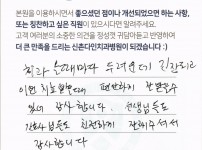 본원을 이용하시면서 좋으셨던 점이나 개선되었으면 하는 사항,
또는 칭찬하고 싶은 직원이 있으시다면 말해주세요.
고객 여러분의 소중한 의견을 정성껏 귀담아듣고 반영하여
더 큰 만족을 드리는 신촌다인치과병원이 되겠습니다 :)
치과 올때마다 두려운데 긴장되고
이번 치료받을때 편안하게 잘 받을수
있어 감사합니다. 선생님들도
간호사님들도 친절하게 잘해주셔서
감사합니다